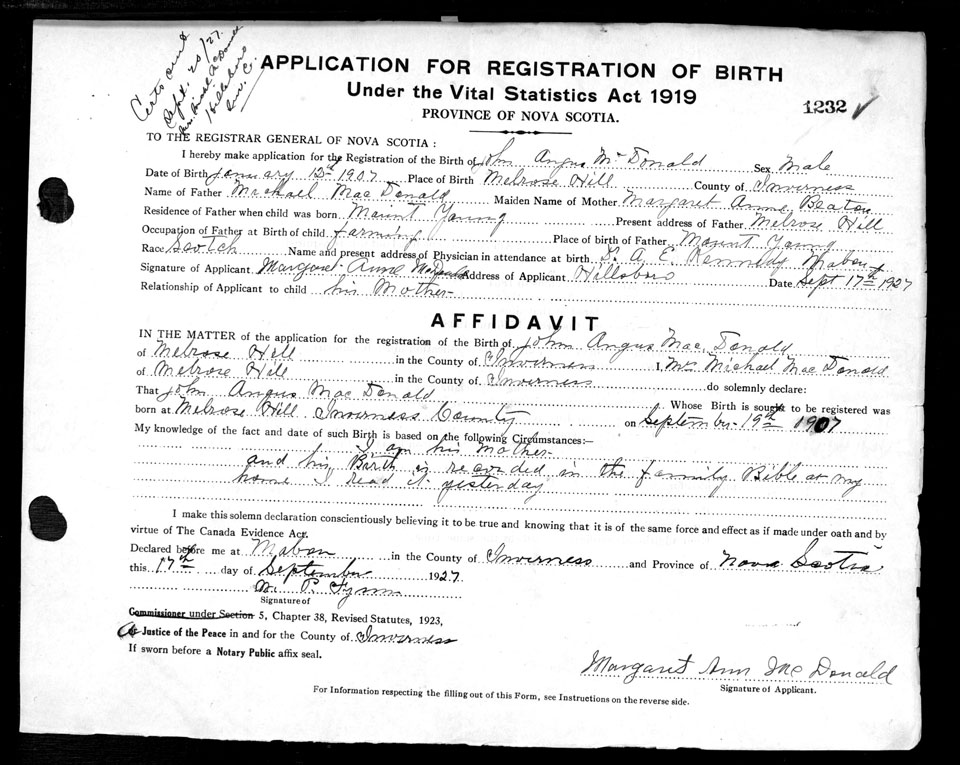 Certs out
Sept. 20/27.
Hillsboro
Inv. C.
APPLICATION FOR REGISTRATION OF BIRTH
Under the Vital Statistics Act 1919
PROVINCE OF NOVA SCOTIA.
1232 ✓
TO THE REGISTRAR GENERAL OF NOVA SCOTIA :
I hereby make application for the Registration of the Birth of John Angus McDonald Sex Male
Date of Birth January 1907 Place of Birth Melrose Hill County of Inverness
Name of Father Michael MacDonald Maiden Name of Mother Margaret Anne Beaton
Residence of Father when child was born Mount Young Present address of Father Melrose Hill
Occupation of Father at Birth of child farming Place of birth of Father Mount Young
Race Scotch Name and present address of Physician in attendance at birth A. E. Kennedy Mabou
Signature of Applicant Margaret Anne McDonald Address of Applicant Hillsboro Date Sept 17th 1927
Relationship of Applicant to child his Mother
AFFIDAVIT
IN THE MATTER of the application for the registration of the Birth of John Angus MacDonald
of Melrose Hill in the County of Inverness I, Mrs Michael MacDonald
of Melrose Hill in the County of Inverness do solemnly declare:
That John Angus MacDonald Whose Birth is sought to be registered was
born at Melrose Hill Inverness County on September 19th 1907
My knowledge of the fact and date of such Birth is based on the following Circumstances:—
I am his Mother
and his Birth is recorded in the family Bible at my
home I read it yesterday
I make this solemn declaration conscientiously believing it to be true and knowing that it is of the same force and effect as if made under oath and by
virtue of The Canada Evidence Act.
Declared before me at Mabou in the County of Inverness and Province of Nova Scotia
this 17th day of September 1927
M. P. Flynn
Signature of
Commissioner under Section 5, Chapter 38, Revised Statutes, 1923,
A Justice of the Peace in and for the County of Inverness
If sworn before a Notary Public affix seal.
Margaret Ann McDonald
Signature of Applicant.
For Information respecting the filling out of this Form, see Instructions on the reverse side.